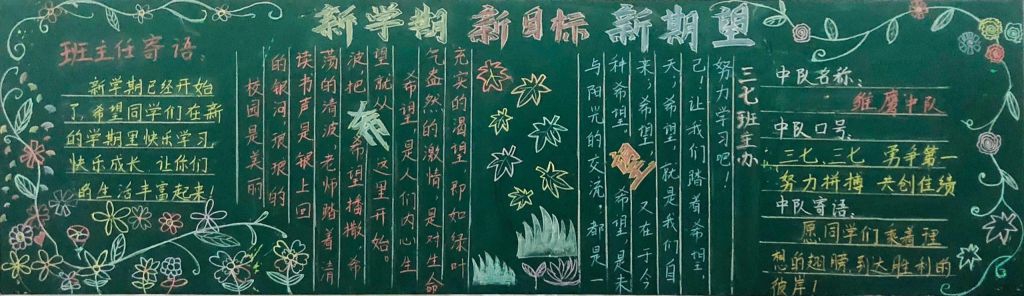 新学期 新目标 新期望
班主任寄语：
新学期已经开始
了，希望同学们在新
的学期里快乐学习，
快乐成长 让你们
的生活丰富起来！
校园是美丽
的 的
读书声是 上回
荡的清波，老师踏着清
波，把希望播撒，希
望就从这里开始。
希望，是人们内心生
气盎然的激情，是对生命
充实的渴望，即如绿叶
希
与阳光的交流；都是一
种希望。希望，是未
来，希望，又在于今
天，希望，就是我们自
己！让我们踏着希望，
努力学习吧！
望
三七班主办
中队名称：
雏鹰中队
中队口号：
三七、三七 勇争第一
努力拼搏 共创佳绩
中队寄语：
愿同学们乘着理
想的翅膀到达胜利的
彼岸！